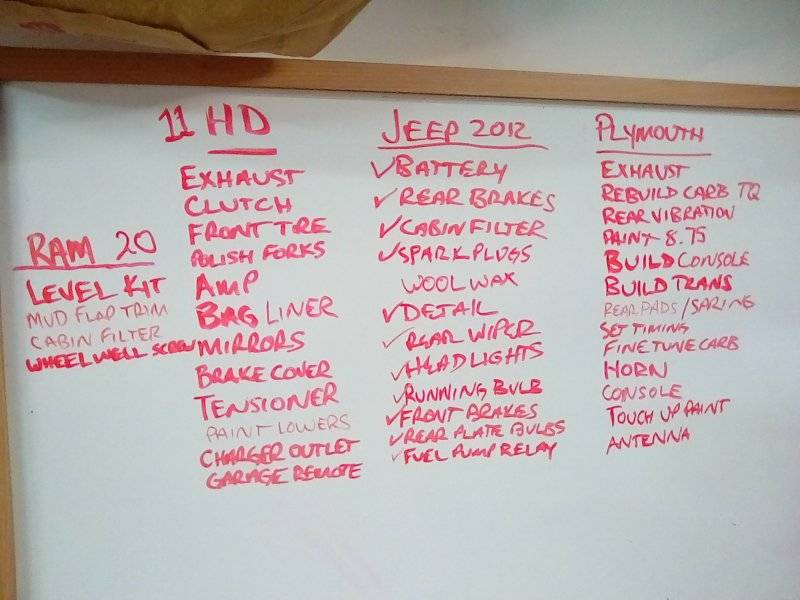 11 HD
EXHAUST
CLUTCH
FRONT TIRE
POLISH FORKS
AMP
BAG LINER
MIRRORS
BRAKE COVER
TENSIONER
PAINT LOWERS
CHARGER OUTLET
GARAGE REMOTE
RAM 20
LEVEL KIT
MUD FLAP TRIM
CABIN FILTER
WHEEL WELL SCREW
JEEP 2012
✓BATTERY
✓REAR BRAKES
✓CABIN FILTER
✓SPARK PLUGS
WOOL WAX
✓DETAIL
✓REAR WIPER
✓HEADLIGHTS
✓RUNNING BULB
✓FRONT BRAKES
✓REAR PLATE BULBS
✓FUEL PUMP RELAY
PLYMOUTH
EXHAUST
REBUILD CARB TQ
REAR VIBRATION
PAINT 8.75
BUILD CONSOLE
BUILD TRANS
REAR PADS/SPRING
SET TIMING
FINE TUNE CARB
HORN
CONSOLE
TOUCH UP PAINT
ANTENNA